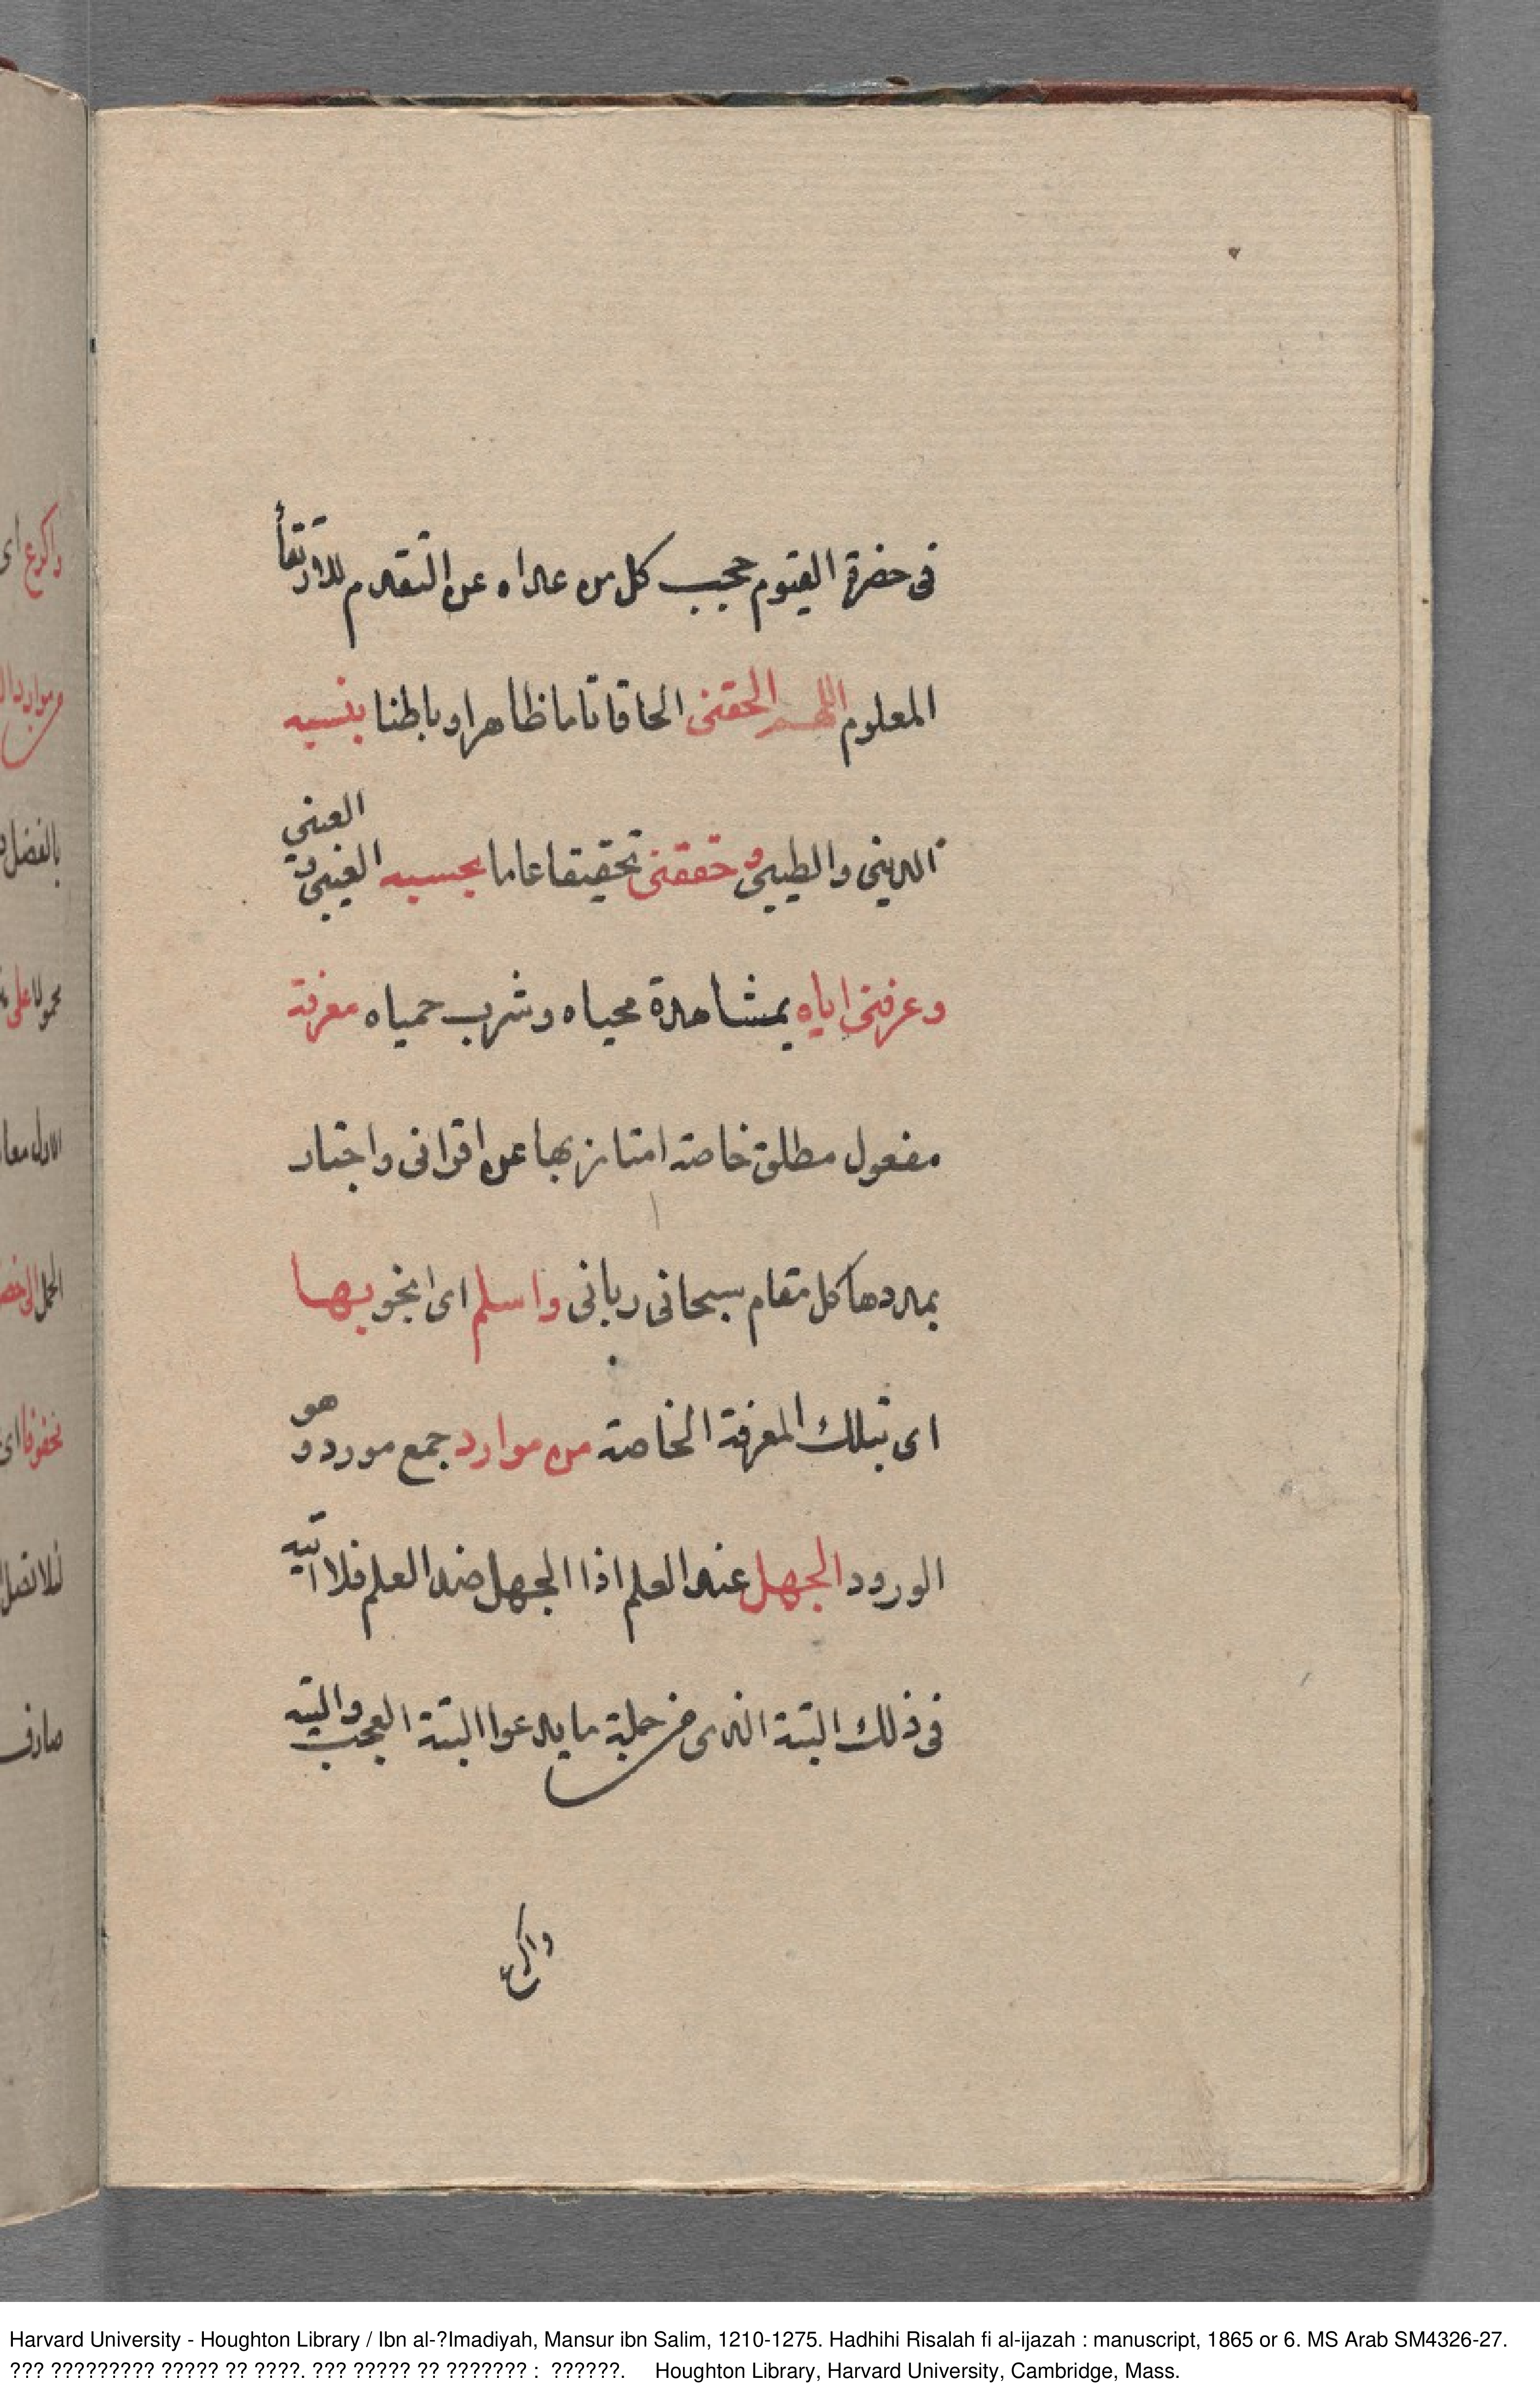 في حضرة القيوم حجب كل من عداه عن التقدم للارتقأ
المعلوم اللهم الحقني الحاقا تاما ظاهرا وباطنا بنسبه
الديني والطيبي وحققني تحقيقا عاما بحسبه الغيبي و العيني
وعرفني اياه بمشاهدة محياه وشرب حمياه معرفة
مفعول مطلق خاصة امتاز بها عن اقراني واجتاز
بمددها كل مقام سبحاني رباني واسلم اي انجو بها
اي بتلك المعرفة الخاصة من موارد جمع مورد وهو
الورود الجهل عند العلم اذا الجهل ضد العلم فلا اتيه
في ذلك التية الذي من جملة ما يدعوا التية العجب والتيه
واكرع
واكرع اي
وموارد ا
بالفضل
محمولا على
الاول
الحمل الى
محفوفا اي
لئلا
Harvard University - Houghton Library / Ibn al-?Imadiyah, Mansur ibn Salim, 1210-1275. Hadhihi Risalah fi al-ijazah : manuscript, 1865 or 6. MS Arab SM4326-27.
??? ????????? ????? ?? ????. ??? ????? ?? ??????? : ??????. Houghton Library, Harvard University, Cambridge, Mass.